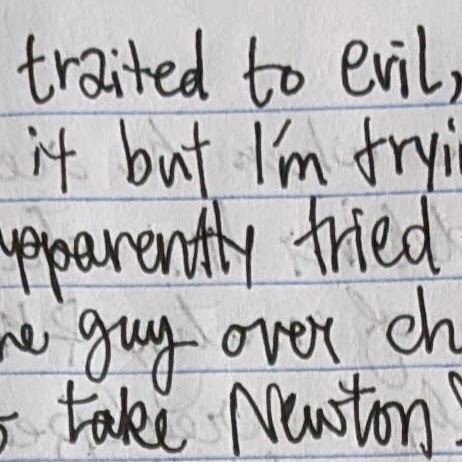 traited to evil,
it but I'm tryi
apparently tried
he guy over ch
take Newton